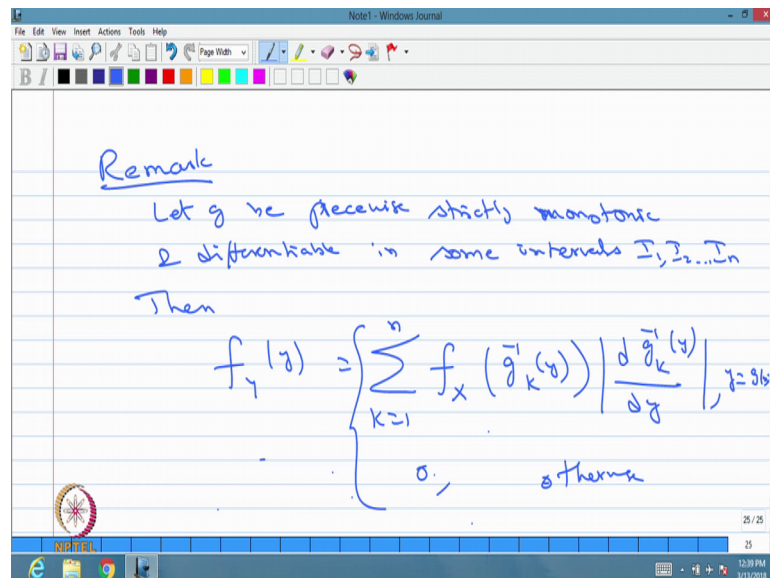 Note1 - Windows Journal
File Edit View Insert Actions Tools Help
Page Width
B I
Remark
Let g be piecewise strictly monotonic
& differentiable in some intervals I₁, I₂...Iₙ
Then
f_Y(y) = { Σ_{k=1}^{n} f_X(g_k^{-1}(y)) |d g_k^{-1}(y)/dy|, y = g(x
0, otherwise
25 / 25
NPTEL
25
12:39 PM
3/13/2018